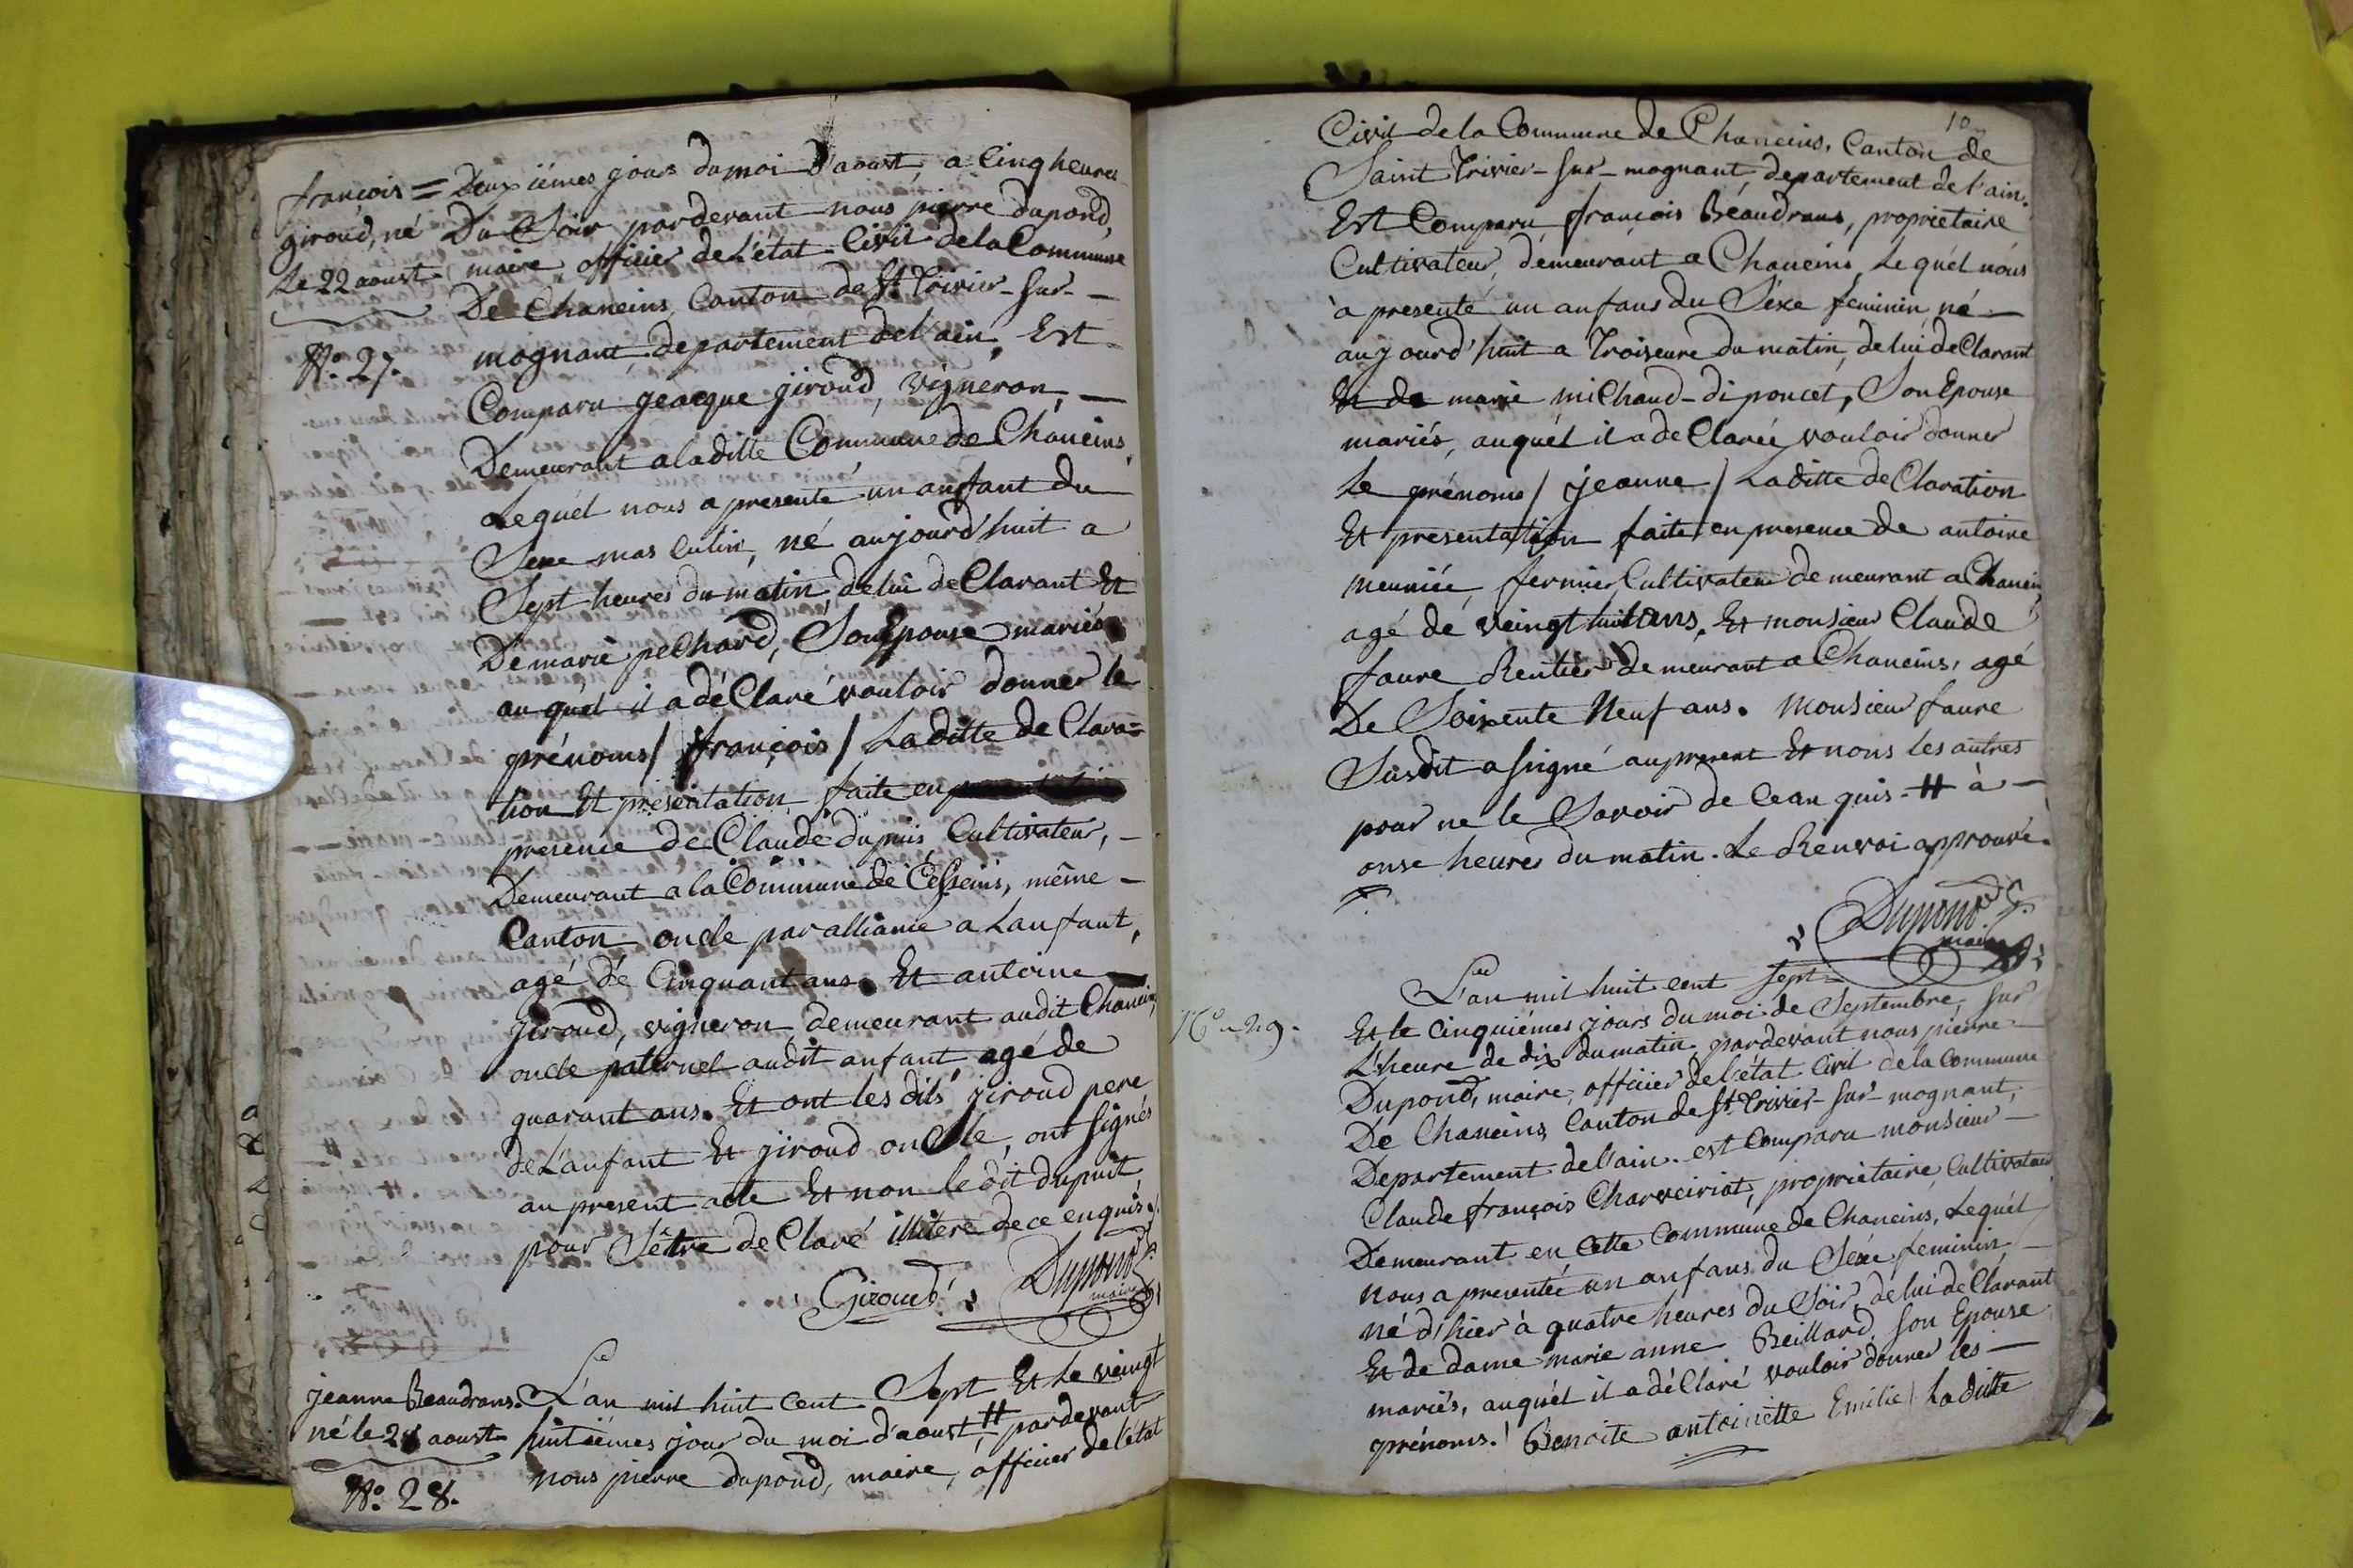 françois =
giroud, né
Le 22 aoust
N.º 27.
Deuxiemes jours du moi D'aoust, a Cinq heures
Du Soir pardevant nous pierre dupond,
maire, officier de L'état Civil de la Commune
De Chaneins, Canton de St. Trivier-sur-
mognant, departement del'ain, Est
Comparu geacque giroud, vigneron,
Demeurant a laditte Commune de Chaneins,
Lequél nous a presenté un anfant du
Sexe mas Culin, né aujourd'huit a
Sept heures du matin, de lui de Clarant Et
De marie peChard, Son Epouse mariés
auquél il a déClaré vouloir donner le
prénoms / françois / La ditte de Clara=
tion Et presentation faite en
presence de Claude dupuis, Cultivateur,
Demeurant a la Commune de Cesseins, même
Canton oncle par alliance a Lanfant,
agé dé Cinquant ans. Et antoine
giroud, vigneron, demeurant audit Chaneins,
oncle paternel audit anfant, agé de
quarant ans. Et ont les dits giroud pere
de L'anfant Et giroud oncle, ont signés
au present acte Et non le dit dupuit
pour Sêtre de Claré illitére de ce enquis.
Giroud
Dupond
maire
jeanne Beaudrans.
né le 28 aoust
N.º 28.
L'an mil huit Cent Sept Et Le veingt
huitiémes jour du moi d'aoust # pardevant
nous pierre dupond, maire, officier de l'état
10
Civil de la Commune de Chaneins, Canton de
Saint Trivier-sur-mognant, departement de l'ain.
Est Comparu françois Beaudrans, propriétaire
Cultivateur, demeurant a Chaneins, Lequél nous
à presenté un anfans du Séxe feminin, né
aujourd'huit a Troiseure du matin, de lui de Clarant
Et de marie miChaud-diponcet, Son Epouse
mariés, auquél il a de Clarée vouloir donner
Le prénoms / jeanne / La ditte de Claration
Et presentation faite en presence de antoine
meuniée, fermier Cultivateur demeurant a Chanein,
agé dé veingt huit ans, Et monsieur Claude
faure Rentier demeurant a Chaneins, agé
De Soixente Neuf ans. Monsieur faure
Susdit a signé au present Et nons les autres
pour ne le Savoir de Ceanquis - # à
onse heures du matin. Le Renvoi approuvé.
Dupond
maire
N.º 29.
L'an mil huit cent sept
Et le Cinquiémes jours du moi de Septembre, sur
L'heure de dix du matin, pardevant nous pierre
Dupond, maire, officier de l'état Civil de la Commune
De Chaneins, Canton de St. Trivier-sur-mognant,
Departement de l'ain. est Comparu monsieur
Claude françois Charveiriat, propriétaire, Cultivateur
Demeurant en Cette Commune de Chaneins, Lequél
nous a presentée un anfans du Sexe feminin,
né d'hier à quatre heures du Soir, dé lui de Clarant
Et de dame marie anne Beillard, son Epouse
mariés, auquél il a déClaré vouloir donner les
prénoms. / Benoite antoinette Emilie / La ditte